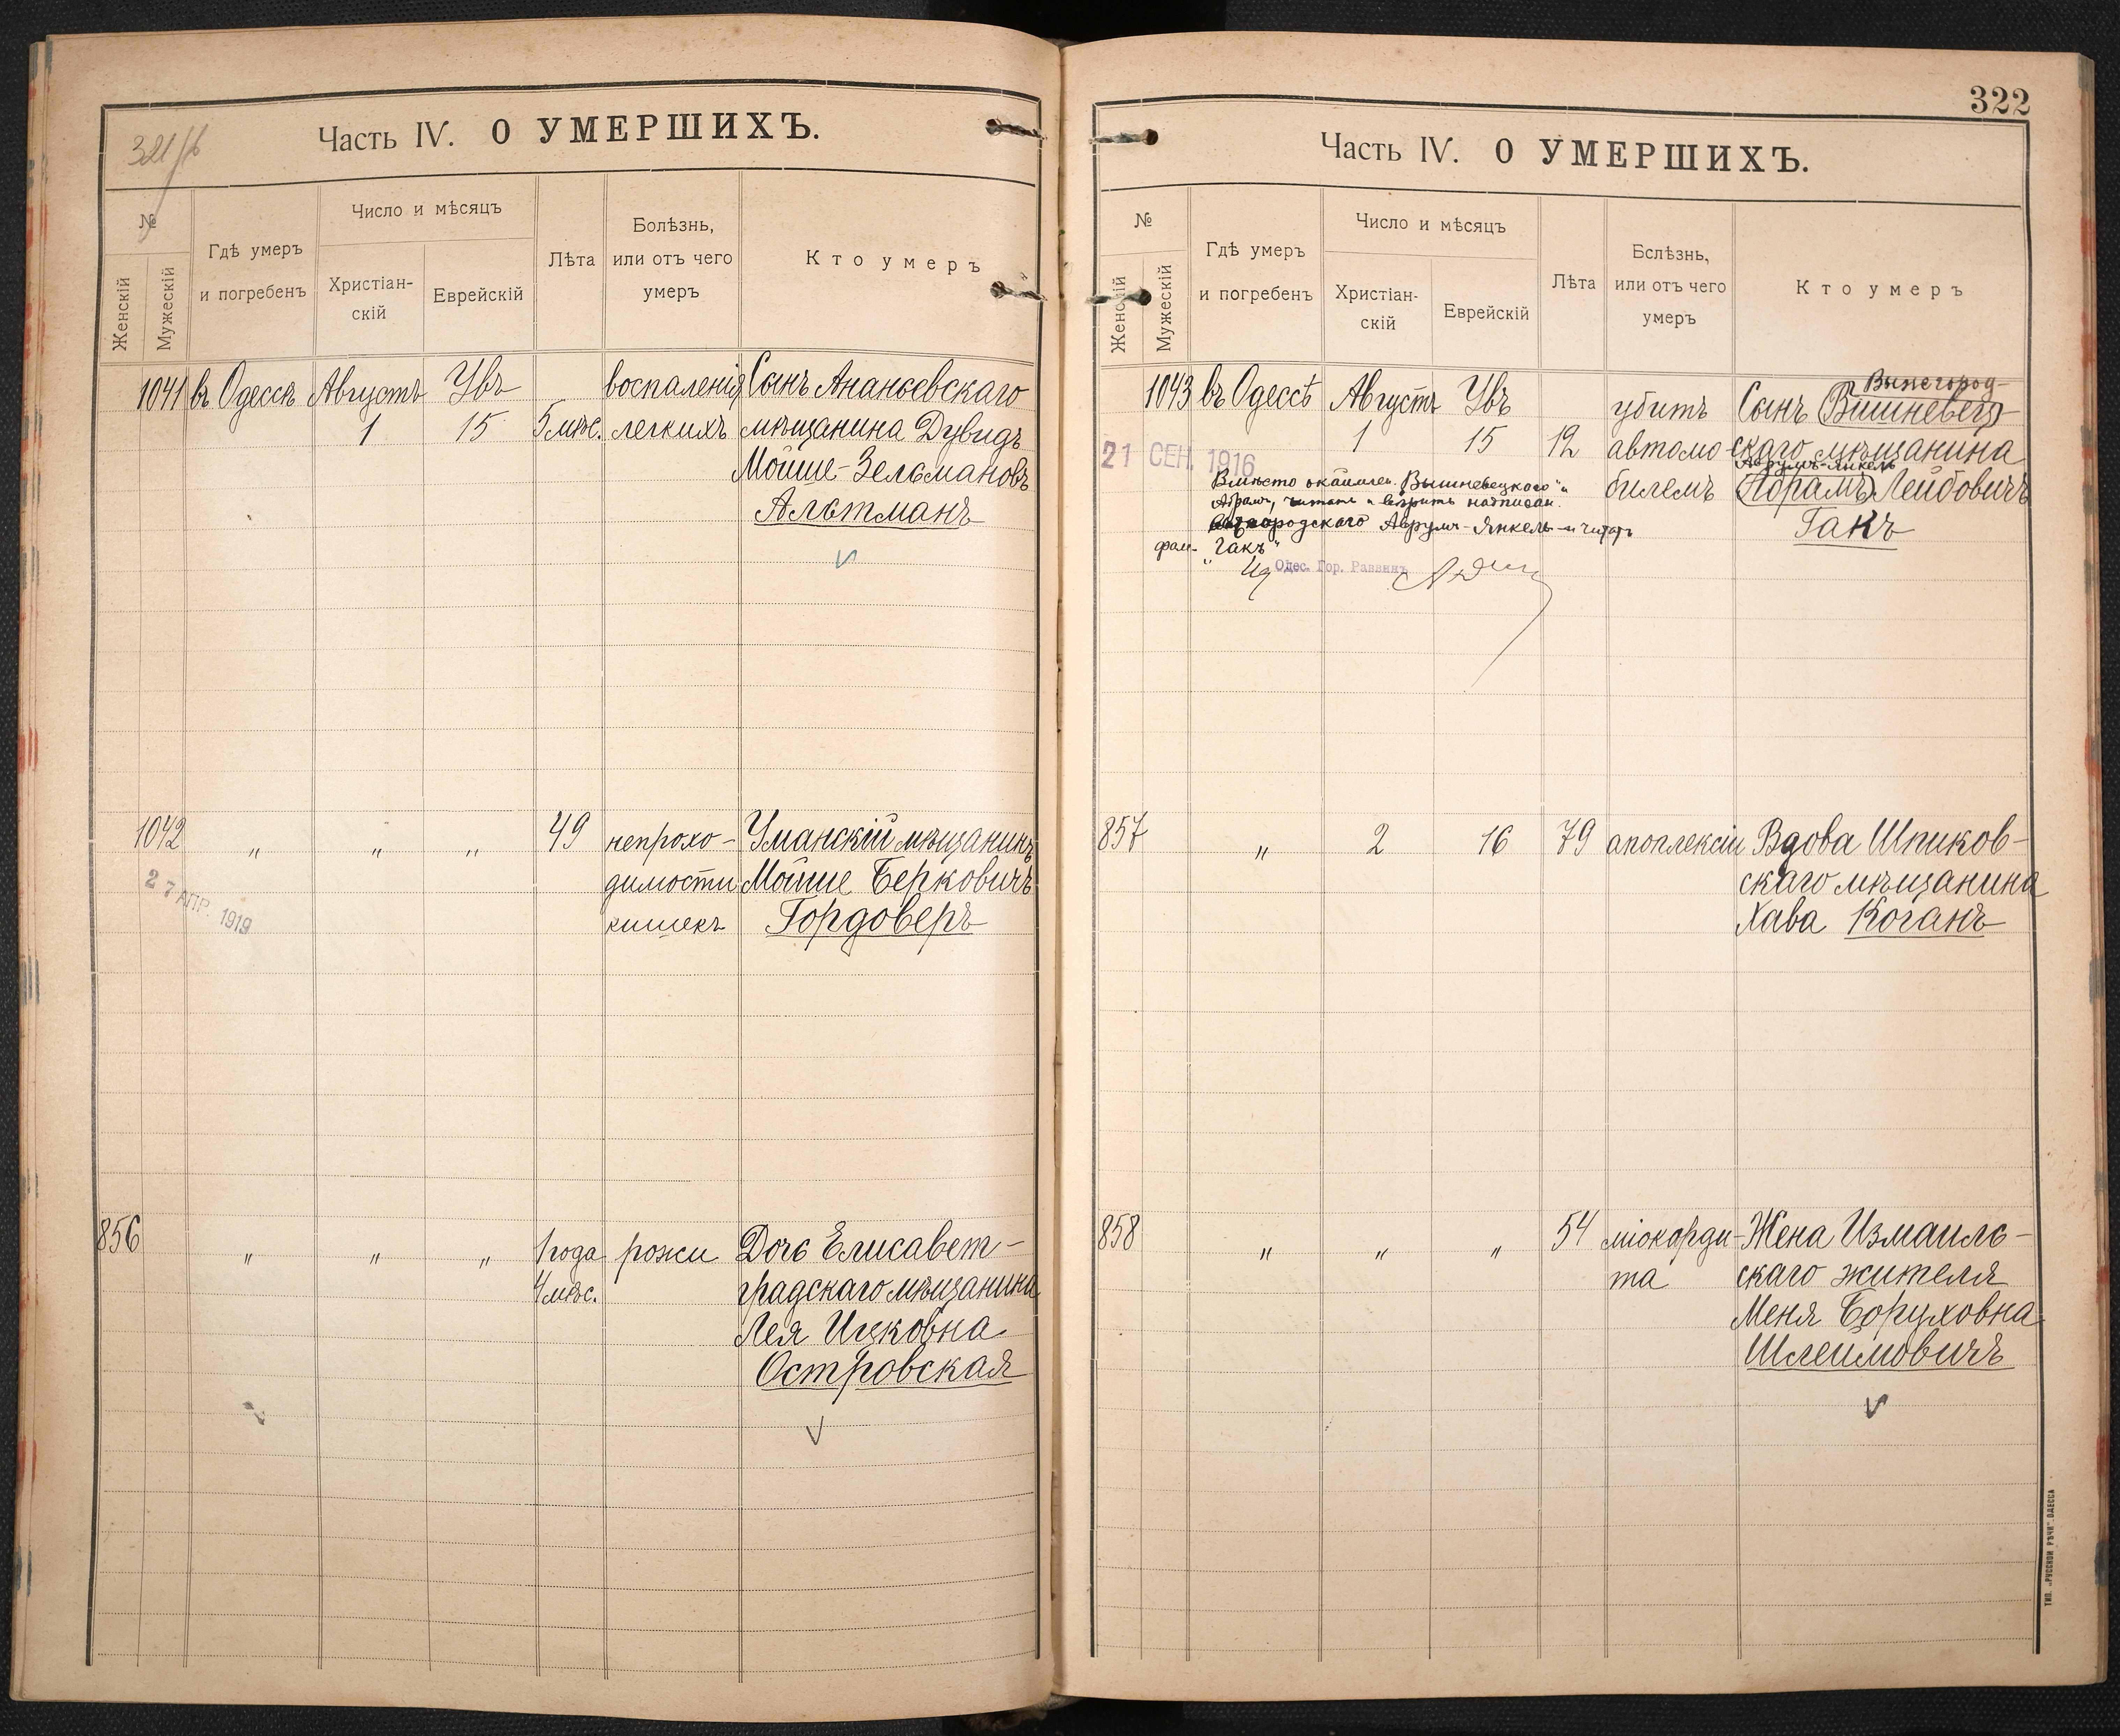 321/б
Часть IV. О УМЕРШИХЪ.
№
Женскій
Мужескій
Гдѣ умеръ
и погребенъ
Число и мѣсяцъ
Христіан-
скій
Еврейскій
Лѣта
Болѣзнь,
или отъ чего
умеръ
Кто умеръ
1041 въ Одессѣ Августъ Увъ воспаленія Сынъ Ананьевскаго
1 15 5 мѣс. легкихъ мѣщанина Дувидъ
Мойше-Зельмановъ
Альтманъ
1042 " " " 49 непрохо- Уманскій мѣщанинъ
димости Мойше Берковичъ
кишекъ Гордоверъ
27 АПР. 1919
856 " " " 1 года рожи Дочь Елисавет-
4 мѣс. градскаго мѣщанина
Лея Ицковна
Островская
322
Часть IV. О УМЕРШИХЪ.
№
Женскій
Мужескій
Гдѣ умеръ
и погребенъ
Число и мѣсяцъ
Христіан-
скій
Еврейскій
Лѣта
Бслѣзнь,
или отъ чего
умеръ
Кто умеръ
Вышегород-
1043 въ Одессѣ Августъ Увъ убитъ Сынъ Вишневец-
1 15 12 автомо- скаго мѣщанина
21 СЕН. 1916
Аврумъ-Янкель
билемъ Абрамъ Лейбовичъ
Гакъ
Вмѣсто окаймлен. "Вышневецкаго" и
Абрамъ, читать и вѣрить надписан.
городскаго Аврумъ-Янкель и читать
фам. "Гакъ"
Одес. Гор. Раввинъ
857 " 2 16 79 апоплексіи Вдова Шпиков-
скаго мѣщанина
Хава Коганъ
858 " " " 54 міокорди- Жена Измаиль-
та скаго жителя
Меня Боруховна
Шлеимовичъ
ТИП. „РУССКОЙ РѢЧИ" ОДЕССА